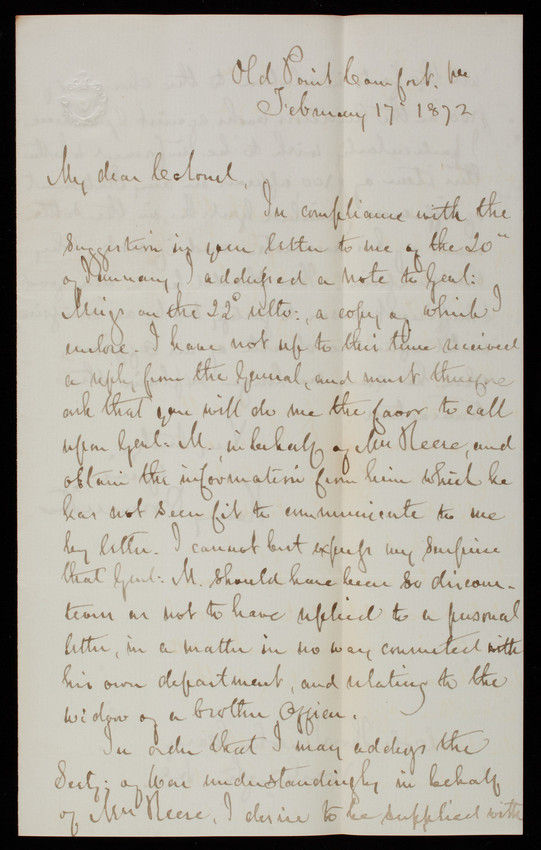 Old Point Comfort. Va
February 17th 1872
My dear Colonel,
In compliance with the
suggestion in your letter to me of the 20th
of January, I addressed a note to Genl:
Meigs on the 22d ulto:, a copy of which I
enclose. I have not up to this time received
a reply from the General, and must therefore
ask that you will do me the favor to call
upon Genl: M., in behalf of Mrs Reese, and
obtain the information from him which he
has not seen fit to communicate to me
by letter. I cannot but express my surprise
that Genl: M. should have been so discour-
teous as not to have replied to a personal
letter, in a matter in no way connected with
his own department, and relating to the
widow of a brother officer.
In order that I may address the
Secty: of War understandingly in behalf
of Mrs Reese, I desire to be supplied with